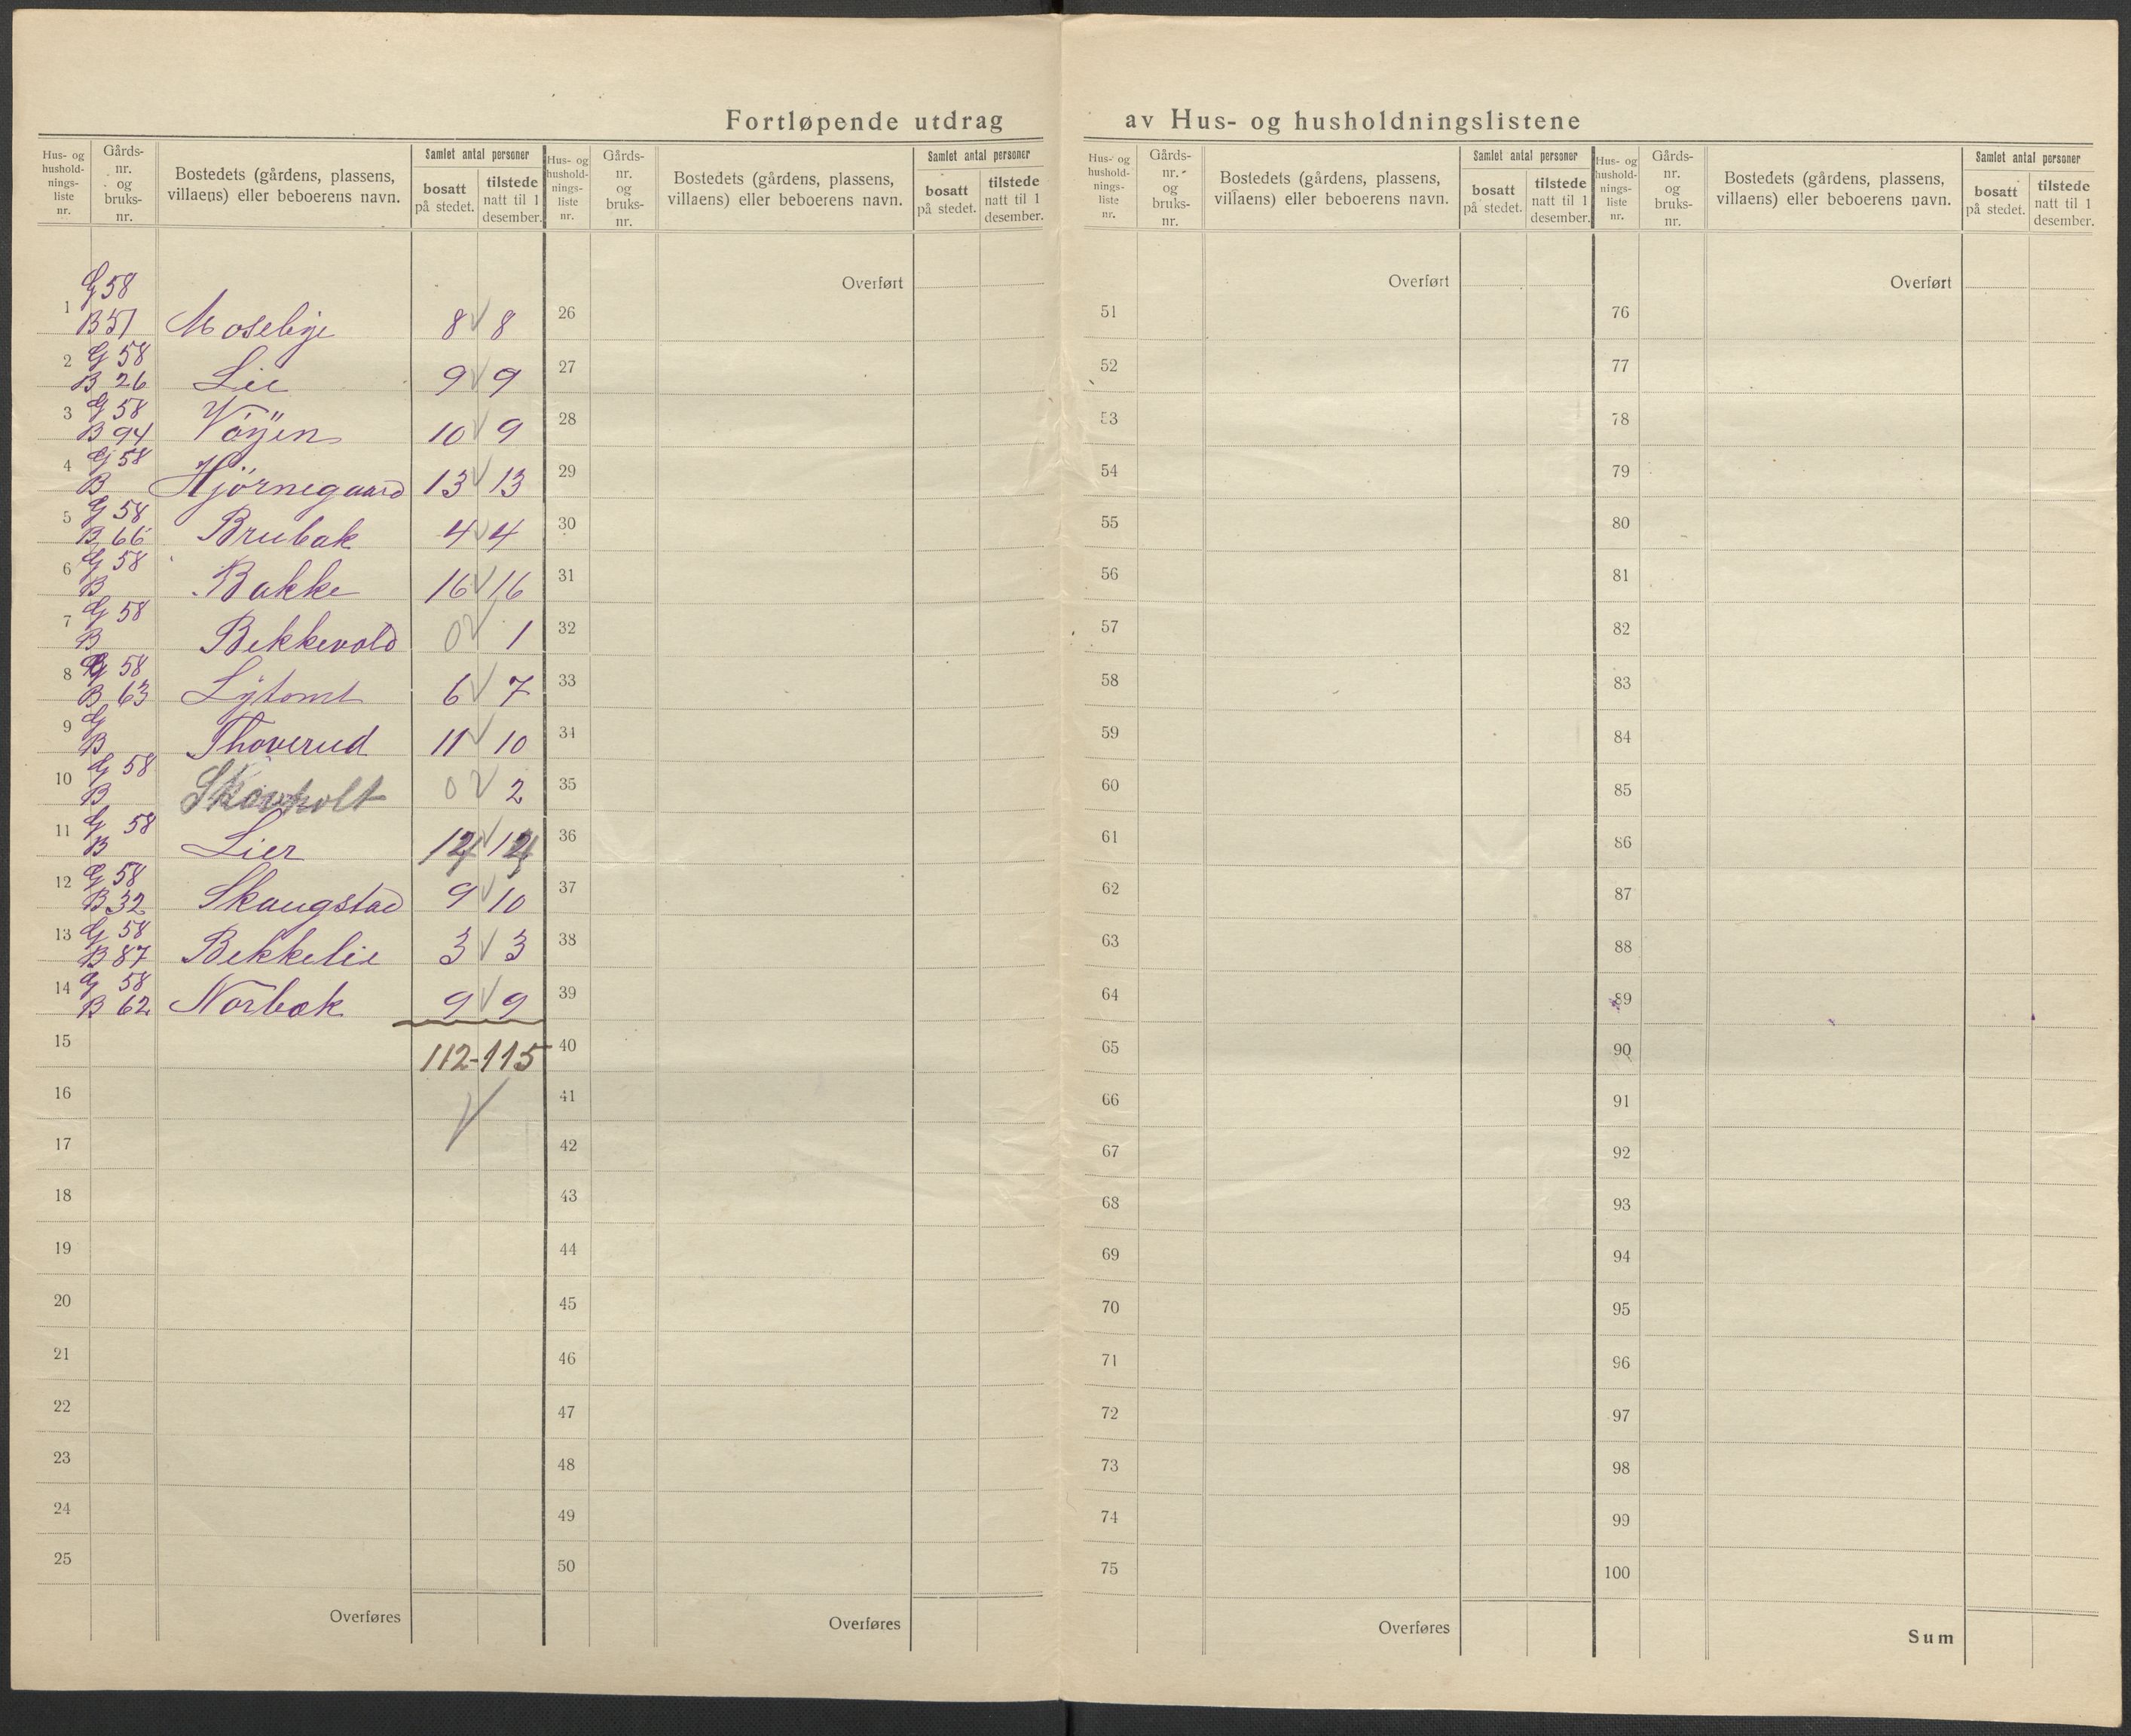 Fortløpende utdrag av Hus- og husholdningslistene
Hus- og hushold- nings- liste nr.
Gårds- nr. og bruks- nr.
Bostedets (gårdens, plassens, villaens) eller beboerens navn.
Samlet antal personer
bosatt på stedet.
tilstede natt til 1 desember.
Hus- og hushold- nings- liste nr.
Gårds- nr. og bruks- nr.
Bostedets (gårdens, plassens, villaens) eller beboerens navn.
Samlet antal personer
bosatt på stedet.
tilstede natt til 1 desember.
Hus- og hushold- nings- liste nr.
Gårds- nr. og bruks- nr.
Bostedets (gårdens, plassens, villaens) eller beboerens navn.
Samlet antal personer
bosatt på stedet.
tilstede natt til 1 desember.
Hus- og hushold- nings- liste nr.
Gårds- nr. og bruks- nr.
Bostedets (gårdens, plassens, villaens) eller beboerens navn.
Samlet antal personer
bosatt på stedet.
tilstede natt til 1 desember.
1 G 58 B 51 Moseby 8 8
2 G 58 B 26 Lie 9 9
3 G 58 B 94 Vøyen 10 9
4 G 58 B Hjørnegaard 13 13
5 G 58 B 66 Brubak 4 4
6 G 58 B Bakke 16 16
7 G 58 B Bekkevold 0 1
8 G 58 B 63 Lytomt 6 7
9 G B Thoverud 11 10
10 G 58 B Skovholt 0 2
11 G 58 B Lier
12 G 58 B 32 Skaugstad 9 10
13 G 58 B 87 Bekkelie 3 3
14 G 58 B 62 Norbak 9 9
15 112-115
16
17
18
19
20
21
22
23
24
25
Overføres
Overført
26
27
28
29
30
31
32
33
34
35
36
37
38
39
40
41
42
43
44
45
46
47
48
49
50
Overføres
Overført
51
52
53
54
55
56
57
58
59
60
61
62
63
64
65
66
67
68
69
70
71
72
73
74
75
Overføres
Overført
76
77
78
79
80
81
82
83
84
85
86
87
88
89
90
91
92
93
94
95
96
97
98
99
100
Sum